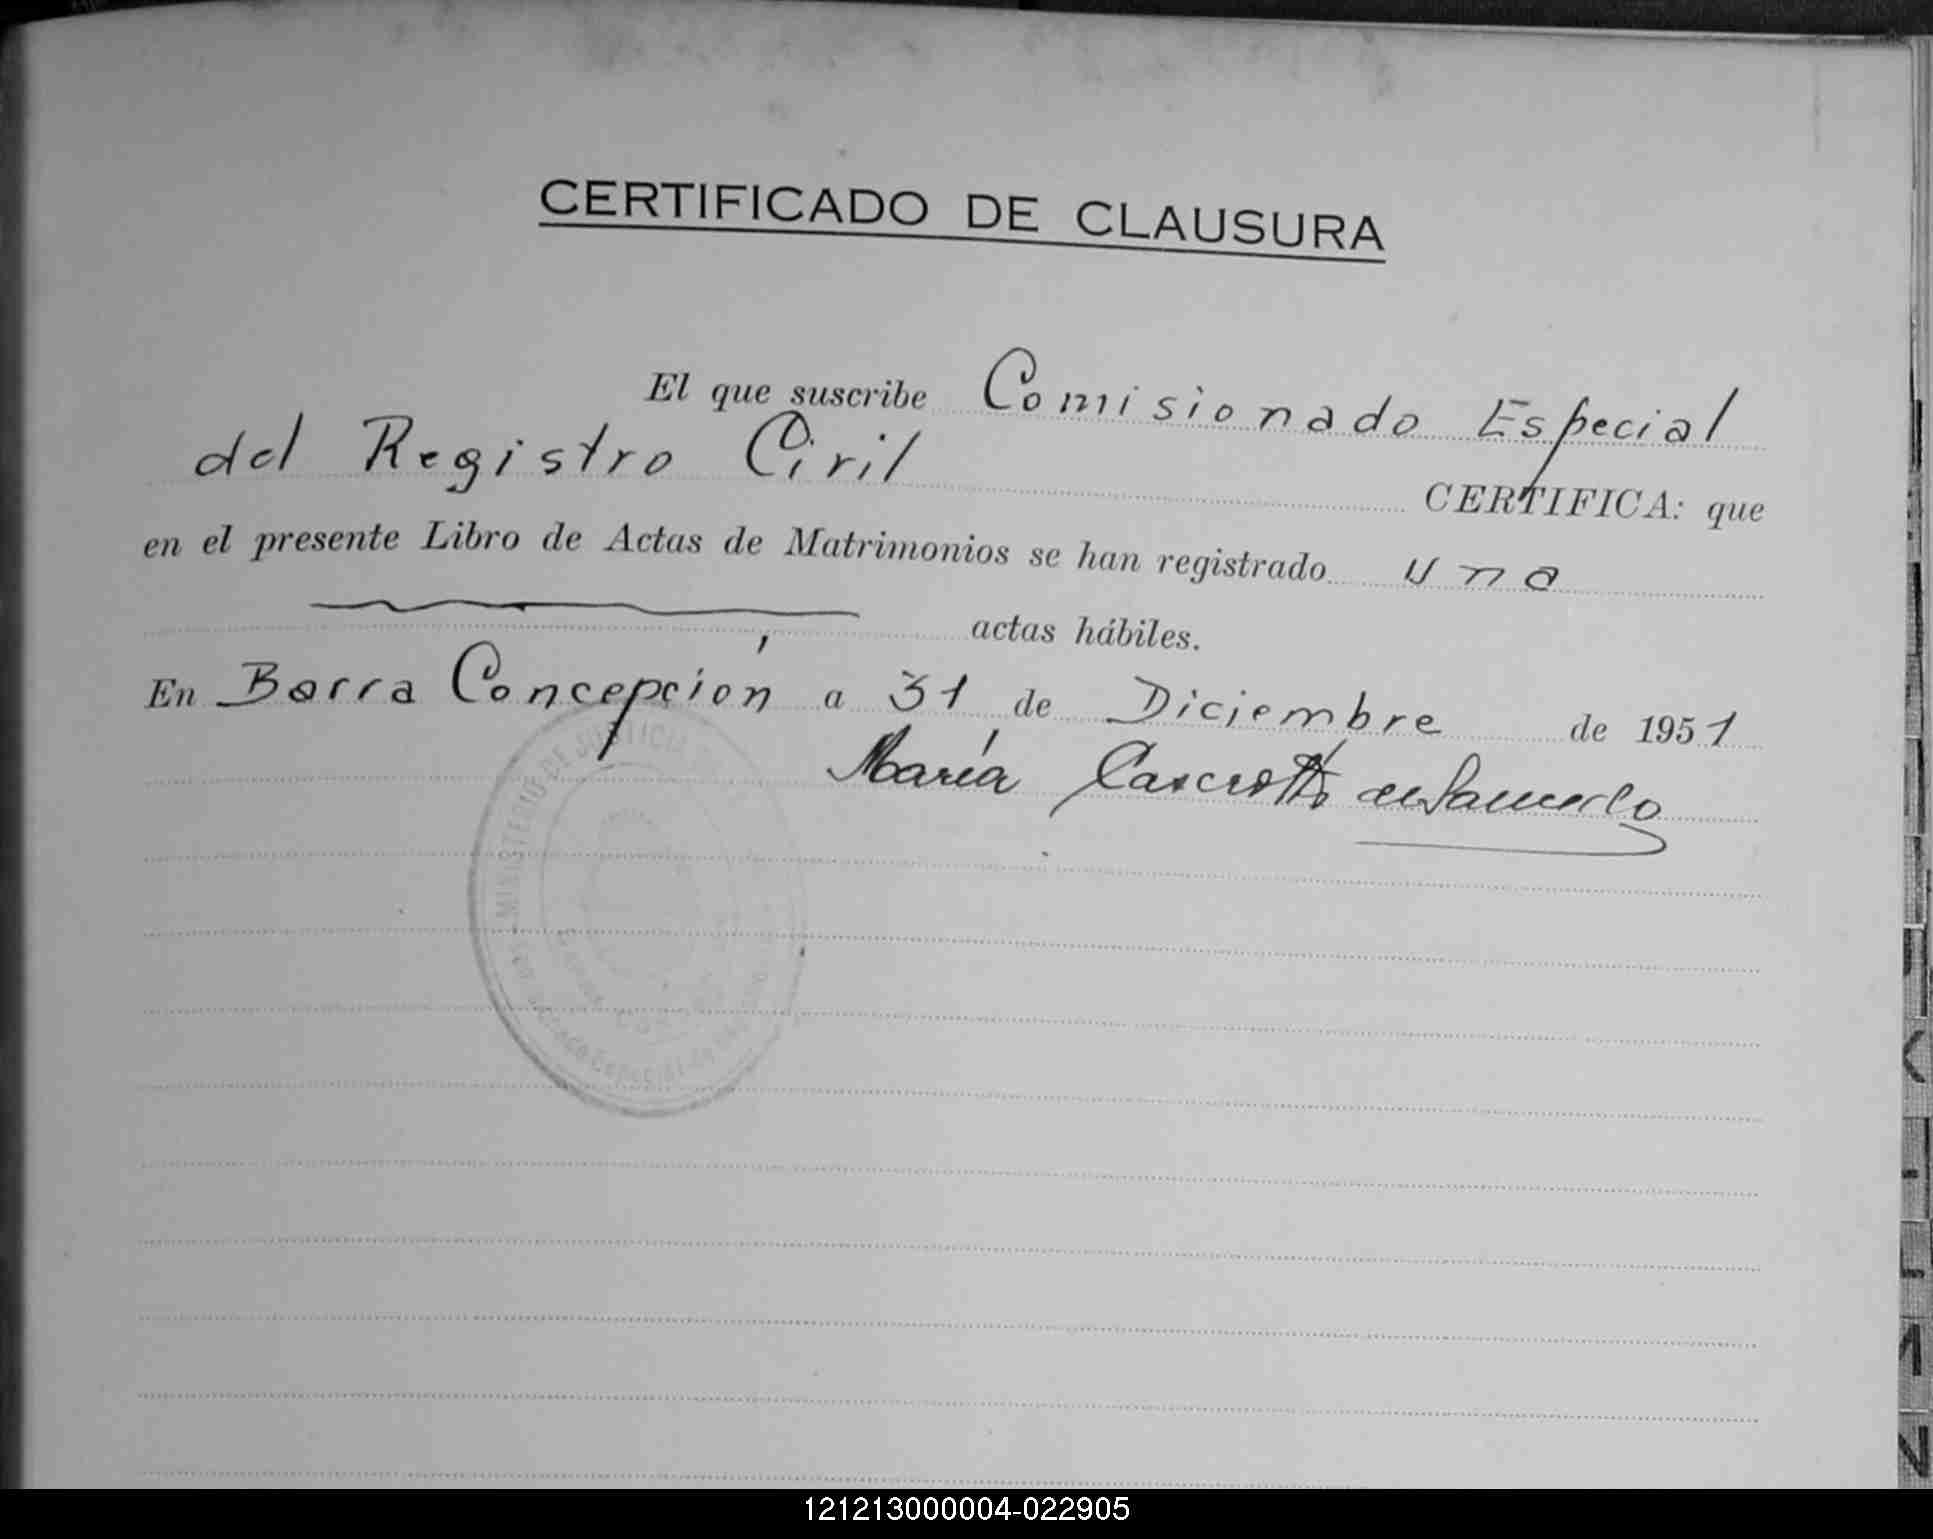 CERTIFICADO DE CLAUSURA
El que suscribe Comisionado Especial
del Registro Civil CERTIFICA: que
en el presente Libro de Actas de Matrimonios se han registrado una
actas hábiles.
En Barra Concepción a 31 de Diciembre de 1951
María
MINISTERIO DE JUSTICIA
121213000004-022905